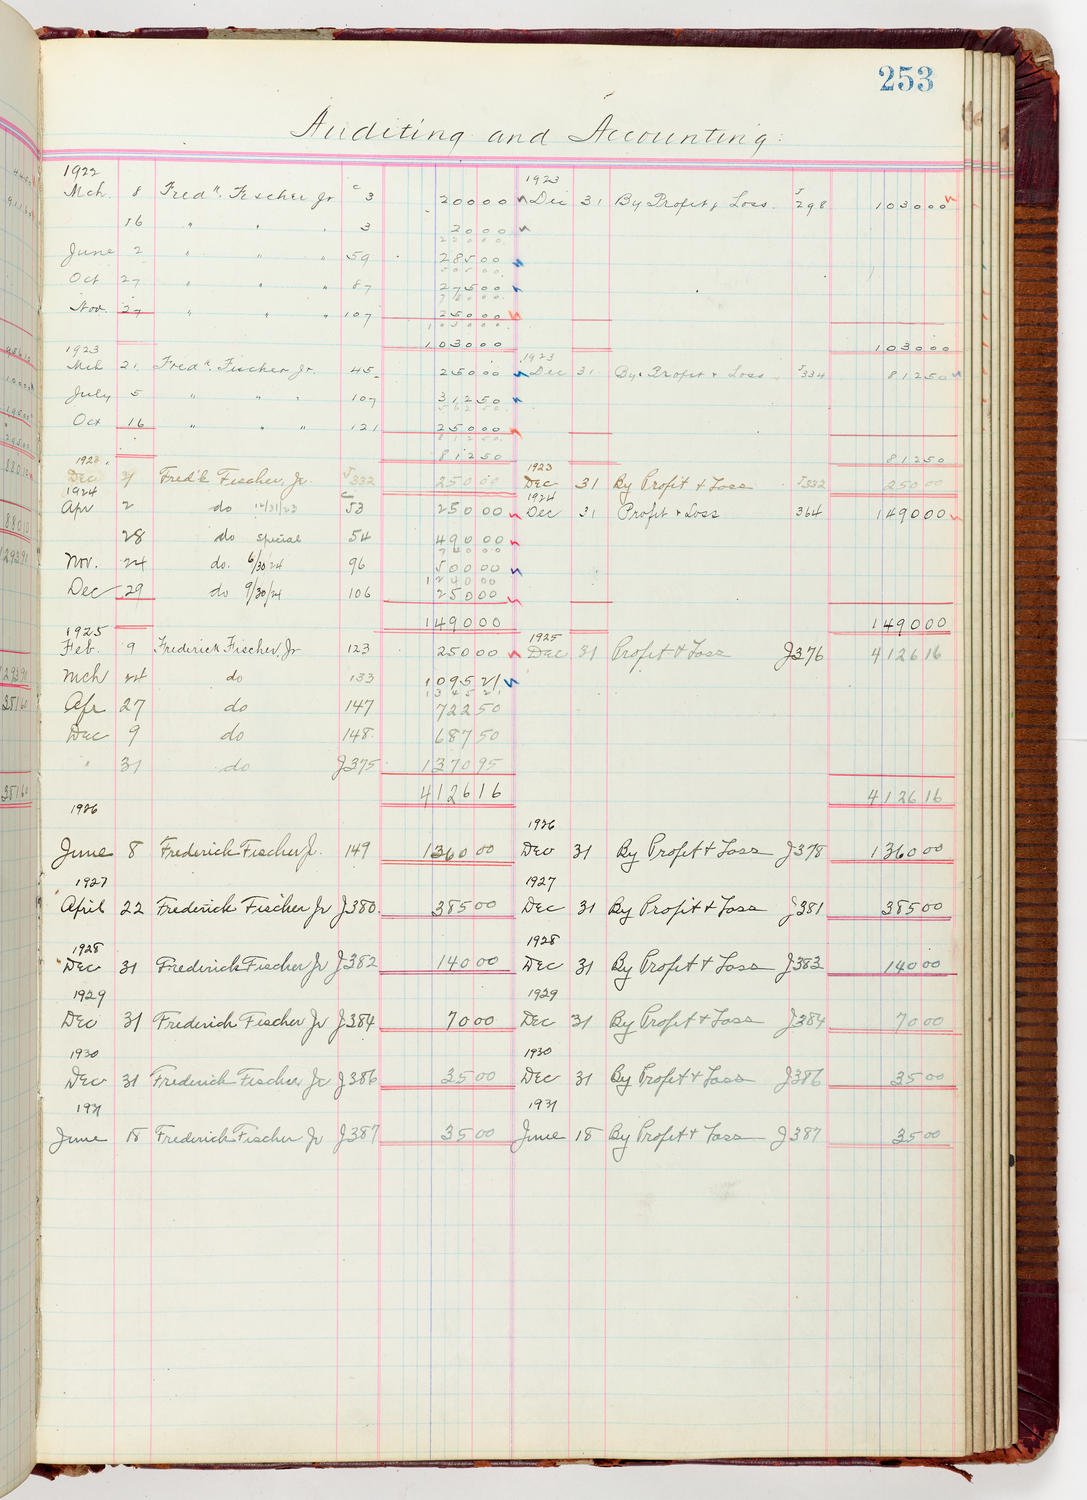 253
Auditing and Accounting.
1922 1923
Mch. 8 Fredk. Fischer Jr c 3 200 00 Dec 31 By Profit & Loss J 298 1030 00
16 " " " 3 20 00
220 00
June 2 " " " 59 285 00
505 00
Oct 27 " " " 87 275 00
780 00
Nov. 27 " " " 107 250 00
1030 00
1030 00 1030 00
1923 1923
Mch 21 Fredk. Fischer Jr. 45 250 00 Dec 31 By Profit & Loss J334 812 50
July 5 " " " 107 312 50
562 50
Oct 16 " " " 121 250 00
812 50
812 50 812 50
1923 1923
Dec 31 Fred'k Fischer, Jr. J332 250 00 Dec 31 By Profit & Loss J332 250 00
1924 1924
Apr 2 do 12/31/23 c 53 250 00 Dec 31 Profit & Loss 364 1490 00
28 do special 54 490 00
740 00
Nov. 24 do. 6/30/24 96 500 00
1240 00
Dec 29 do 9/30/24 106 250 00
1490 00 1490 00
1925 1925
Feb. 9 Frederick Fischer, Jr 123 250 00 Dec 31 Profit & Loss J376 4126 16
Mch 24 do 133 1095 21
1345 21
Apr 27 do 147 722 50
Dec 9 do 148 687 50
" 31 do J375 1370 95
4126 16 4126 16
1926 1926
June 8 Frederick Fischer Jr. 149 1360 00 Dec 31 By Profit & Loss J378 1360 00
1927 1927
April 22 Frederick Fischer Jr J380 385 00 Dec 31 By Profit & Loss J381 385 00
1928 1928
Dec 31 Frederick Fischer Jr J382 140 00 Dec 31 By Profit & Loss J383 140 00
1929 1929
Dec 31 Frederick Fischer Jr J384 70 00 Dec 31 By Profit & Loss J384 70 00
1930 1930
Dec 31 Frederick Fischer Jr J386 35 00 Dec 31 By Profit & Loss J386 35 00
1931 1931
June 18 Frederick Fischer Jr J387 35 00 June 18 By Profit & Loss J387 35 00